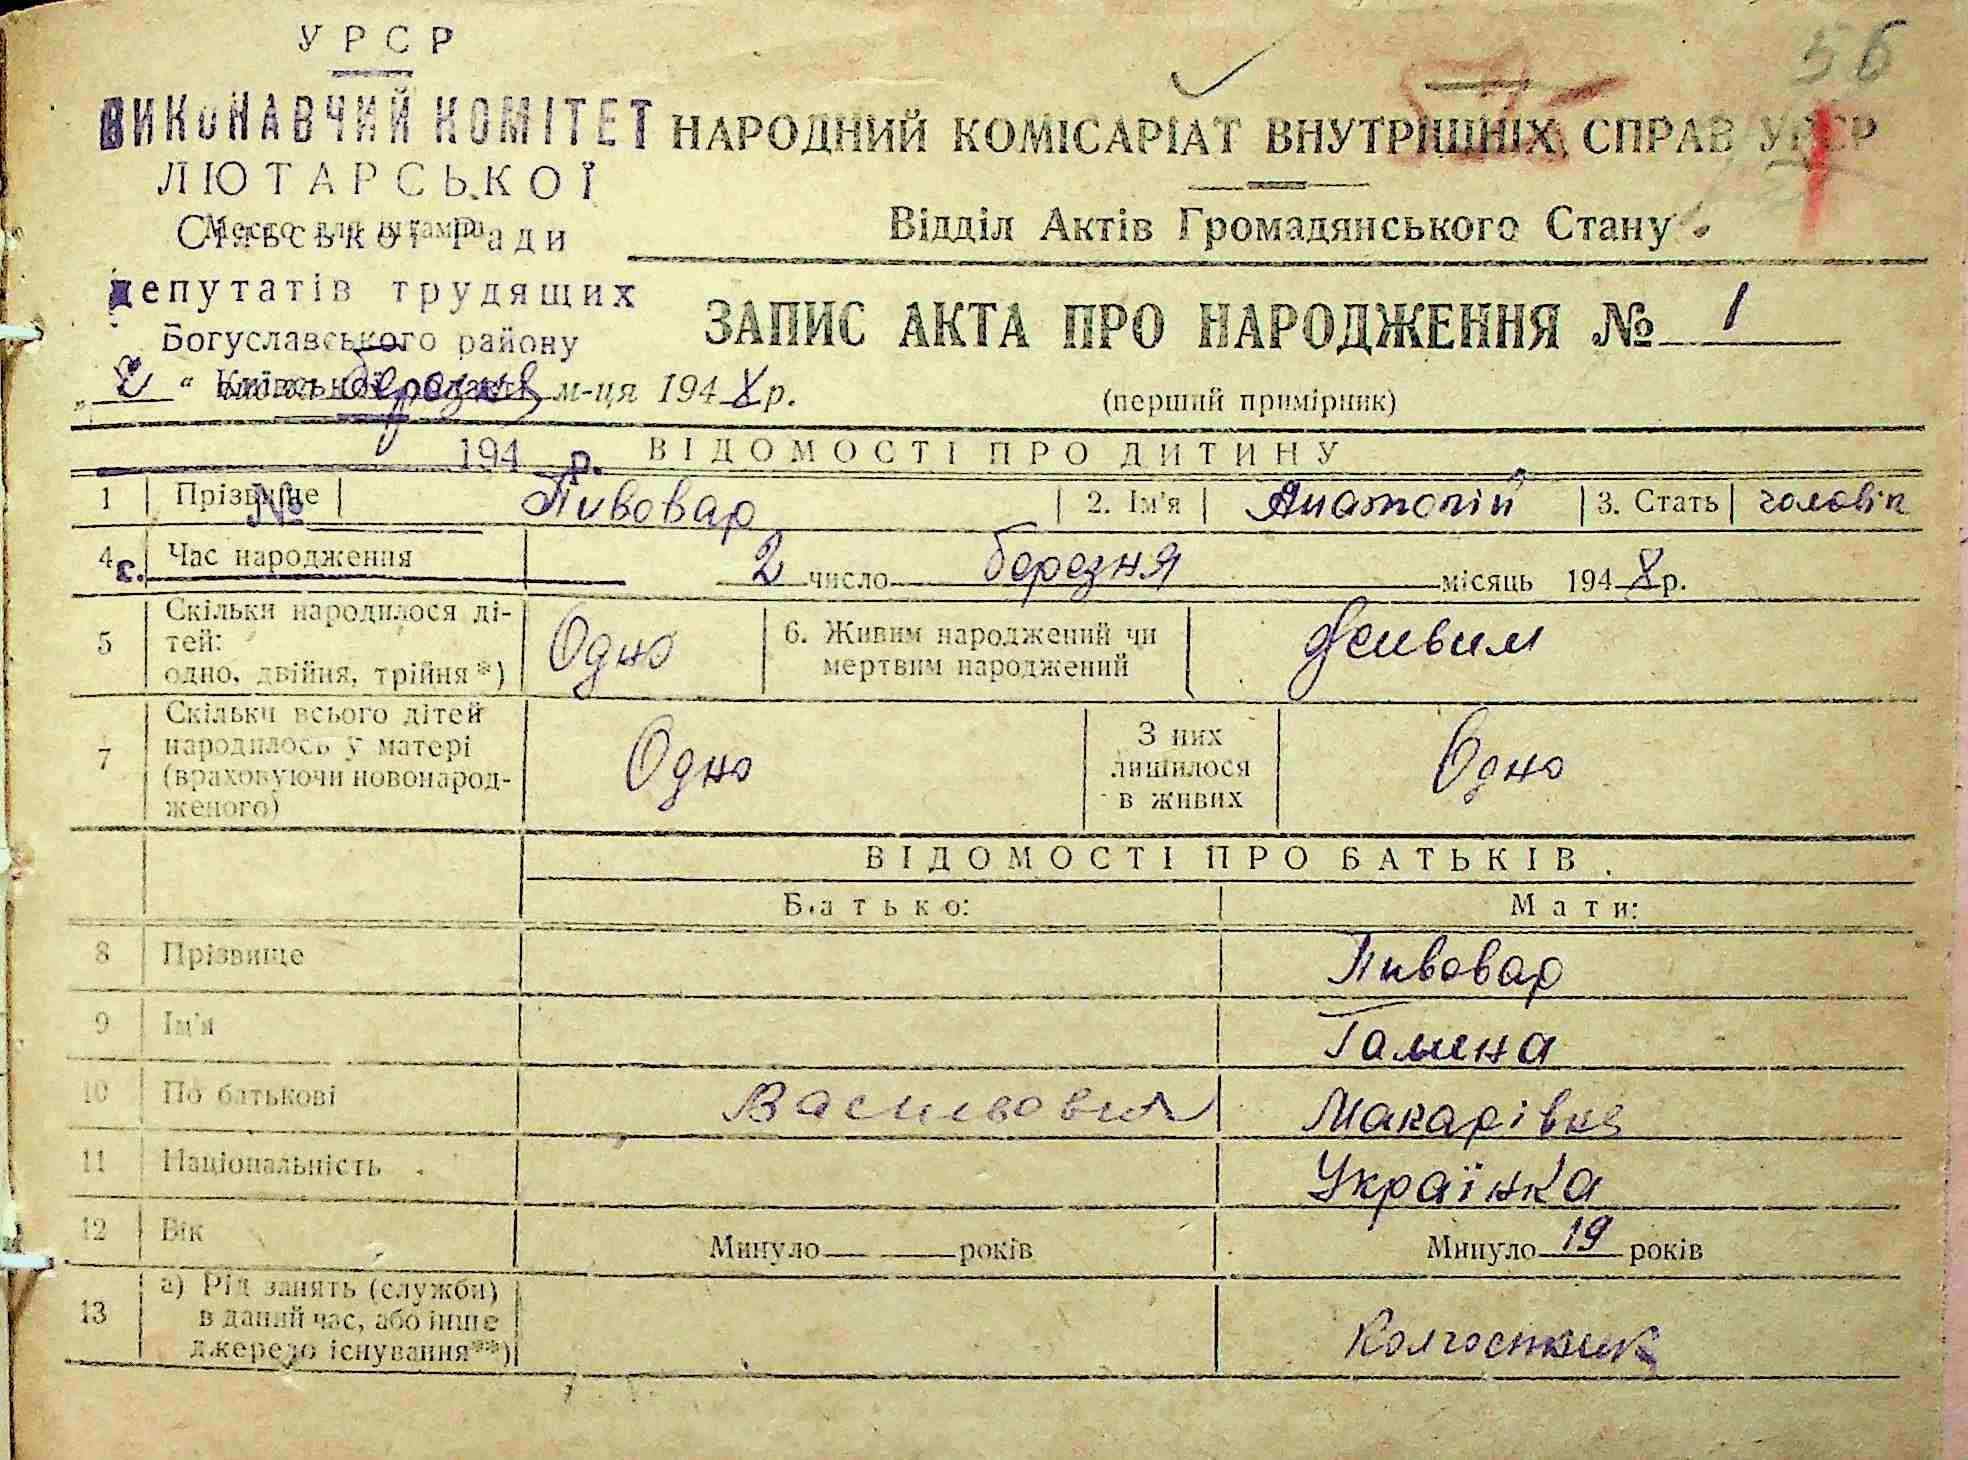 56
УРСР
ВИКОНАВЧИЙ КОМІТЕТ
ЛЮТАРСЬКОЇ
Сільської Ради
депутатів трудящих
Богуславського району
Київської області
194 р.
№
с.
Место для штампа
НАРОДНИЙ КОМІСАРІАТ ВНУТРІШНІХ СПРАВ УРСР
Відділ Актів Громадянського Стану
ЗАПИС АКТА ПРО НАРОДЖЕННЯ № 1
„ 2 “ березня м-ця 1948 р.
(перший примірник)
ВІДОМОСТІ ПРО ДИТИНУ
1 Прізвище Пивовар 2. Ім'я Анатолій 3. Стать чоловік
4 Час народження 2 число березня місяць 1948 р.
5 Скільки народилося ді-
тей:
одно, двійня, трійня*) Одно
6. Живим народжений чи
мертвим народжений Живим
7 Скільки всього дітей
народилось у матері
(враховуючи новонарод-
женого) Одно
З них
лишилося
в живих Одно
ВІДОМОСТІ ПРО БАТЬКІВ
Батько: Мати:
8 Прізвище Пивовар
9 Ім'я Галина
10 По батькові Васильович Макарівна
11 Національність Українка
12 Вік Минуло років Минуло 19 років
13 а) Рід занять (служби)
в даний час, або інше
джерело існування**) Колгоспник